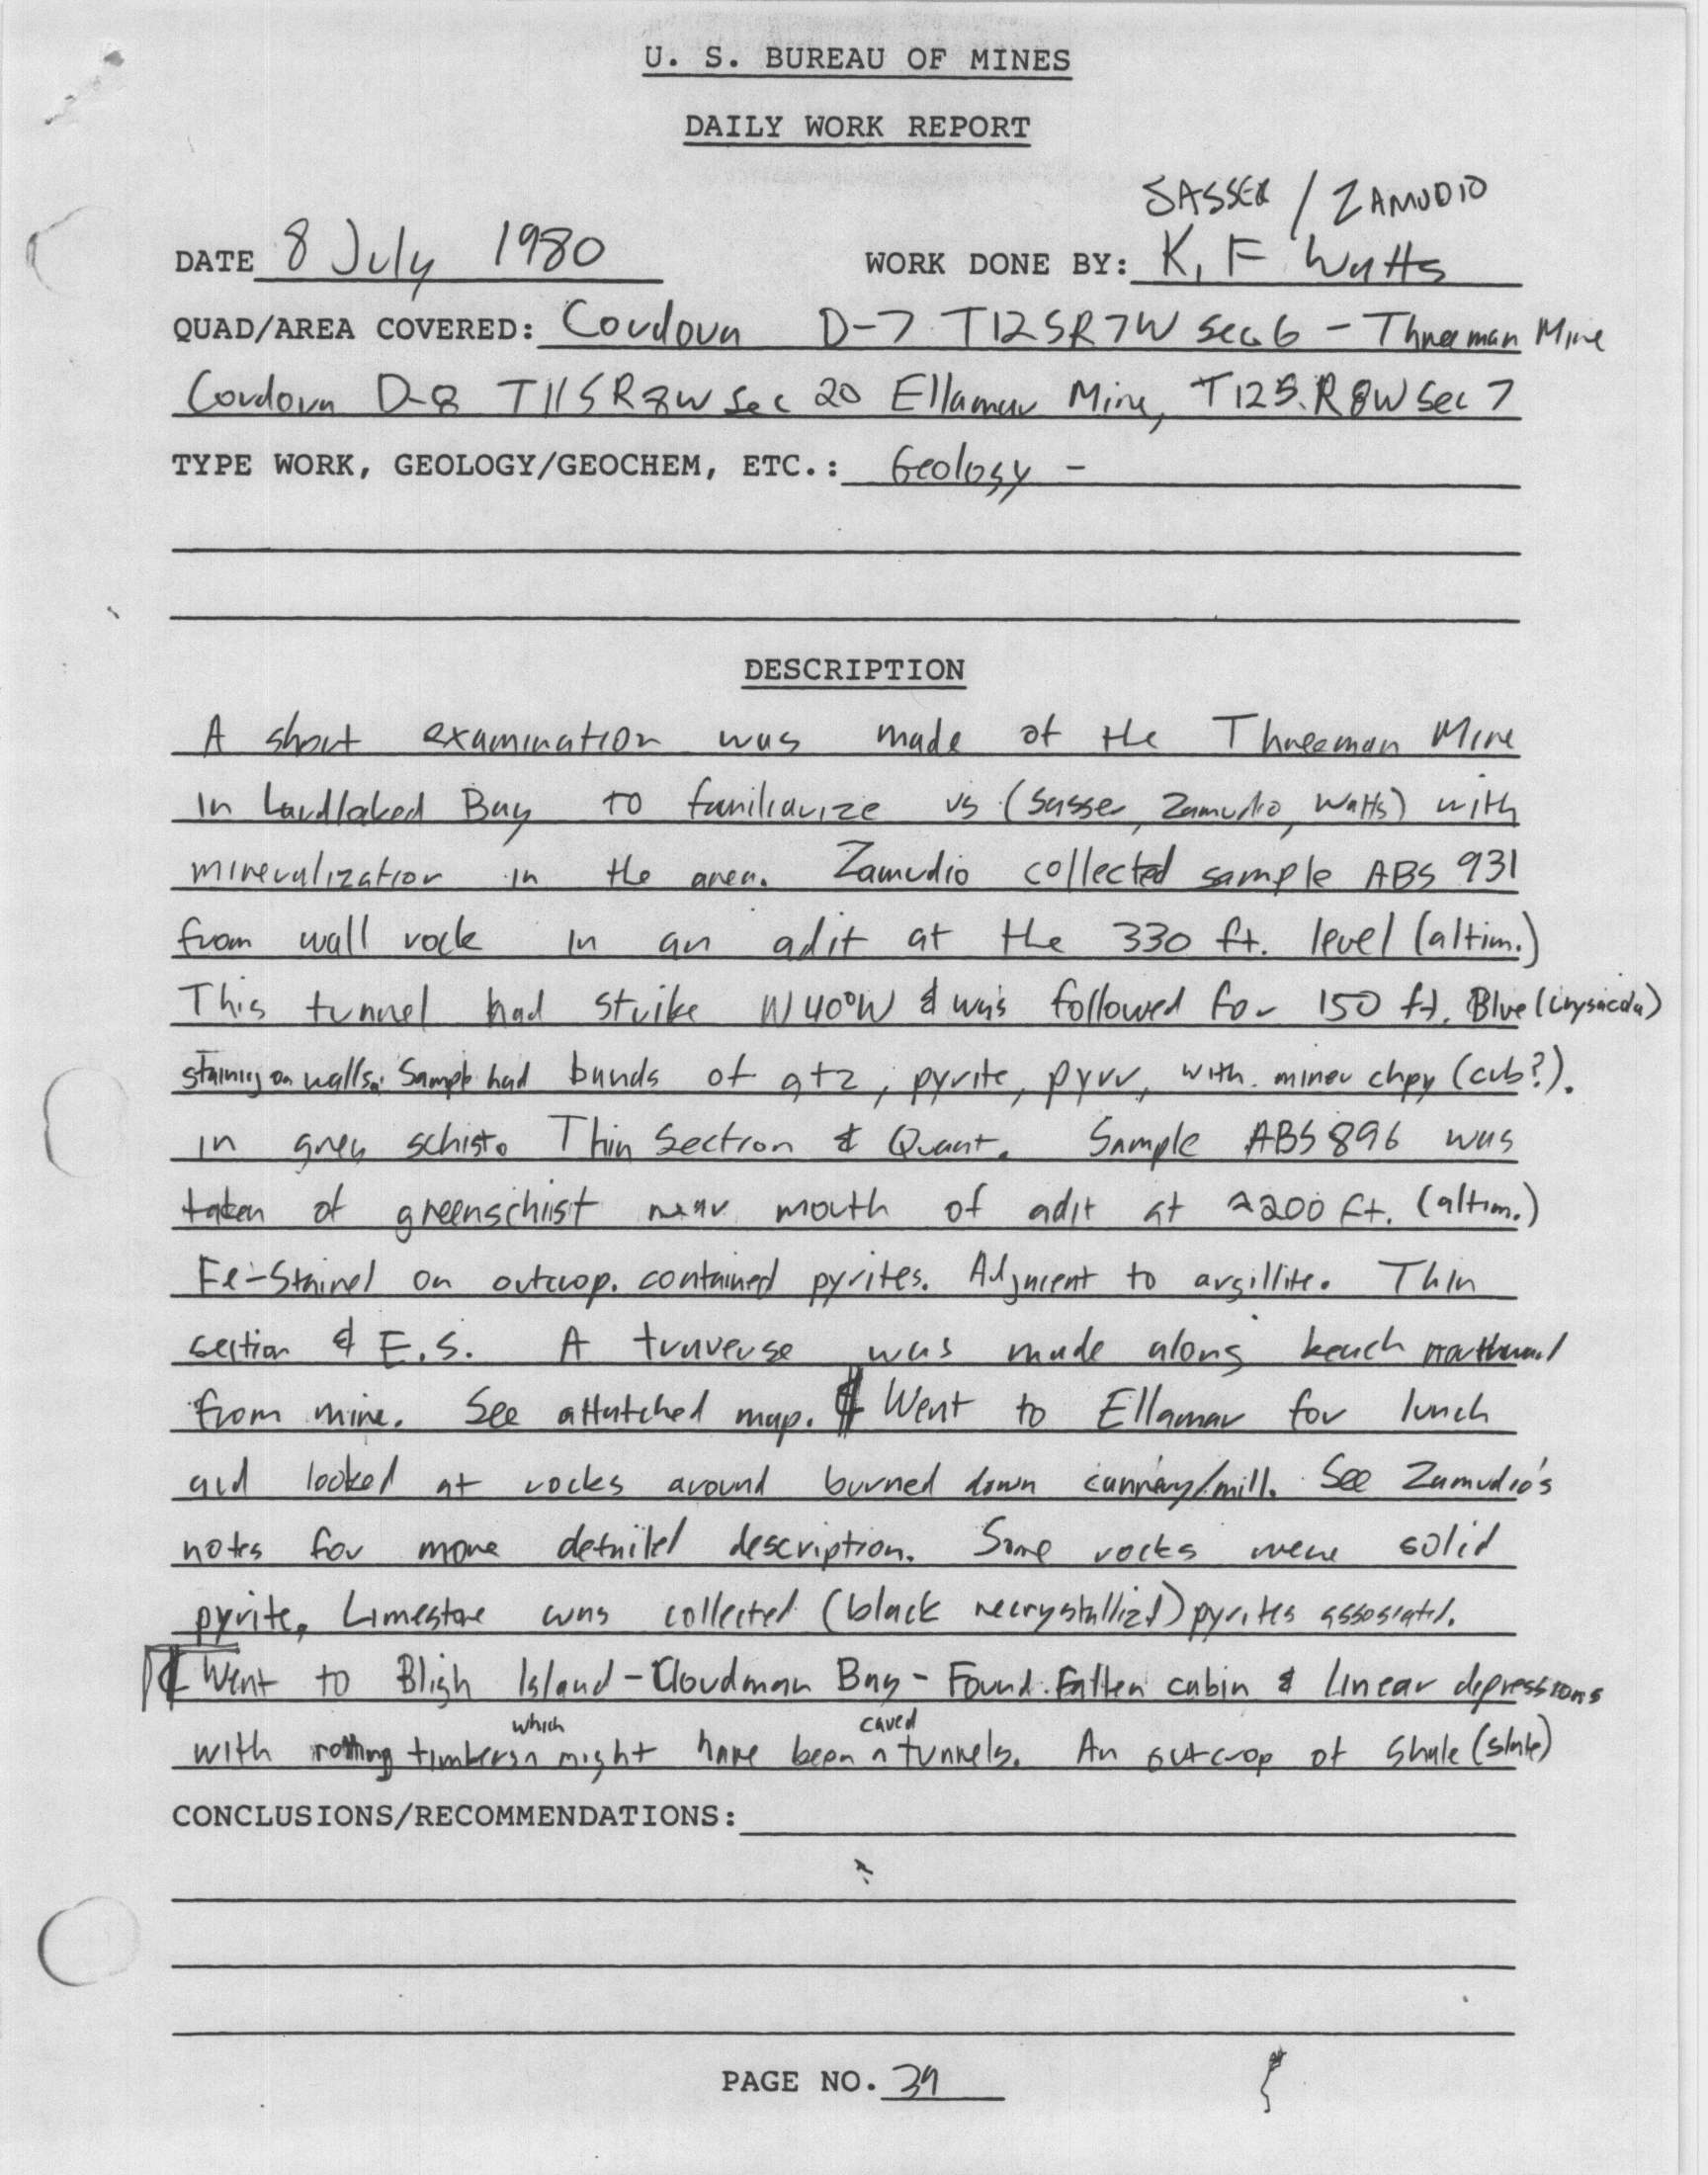 U. S. BUREAU OF MINES
DAILY WORK REPORT
SASSER / ZAMUDIO
DATE 8 July 1980 WORK DONE BY: K. F Watts
QUAD/AREA COVERED: Cordova D-7 T12SR7W Sec. 6 - Threeman Mine
Cordova D-8 T11SR8W Sec 20 Ellamar Mine, T12S. R8W Sec 7
TYPE WORK, GEOLOGY/GEOCHEM, ETC.: Geology -
DESCRIPTION
A short examination was made of the Threeman Mine
in Landlaked Bay to familiarize us (Sasser, Zamudio, Watts) with
mineralization in the area. Zamudio collected sample ABS 931
from wall rock in an adit at the 330 ft. level (altim.)
This tunnel had strike N40°W & was followed for 150 ft. Blue (crysacola)
staining on walls. Sample had bands of qtz, pyrite, pyrr, with minor chpy (cub?).
in grey schist. Thin Section & Quant. Sample ABS 896 was
taken of greenschist near mouth of adit at ≈200 ft. (altim.)
Fe-Stained on outcrop. contained pyrites. Adjacent to argillite. Thin
section & E.S. A traverse was made along beach northward
from mine. See attatched map. ¶ Went to Ellamar for lunch
and looked at rocks around burned down cannery/mill. See Zamudio's
notes for more detailed description. Some rocks were solid
pyrite. Limestone was collected (black recrystallized) pyrites assosiated.
¶ Went to Bligh Island - Cloudman Bay - Found Fallen cabin & linear depressions
with rotting timbers ^which might have been ^caved tunnels. An outcrop of Shale (slate)
CONCLUSIONS/RECOMMENDATIONS:
PAGE NO. 39